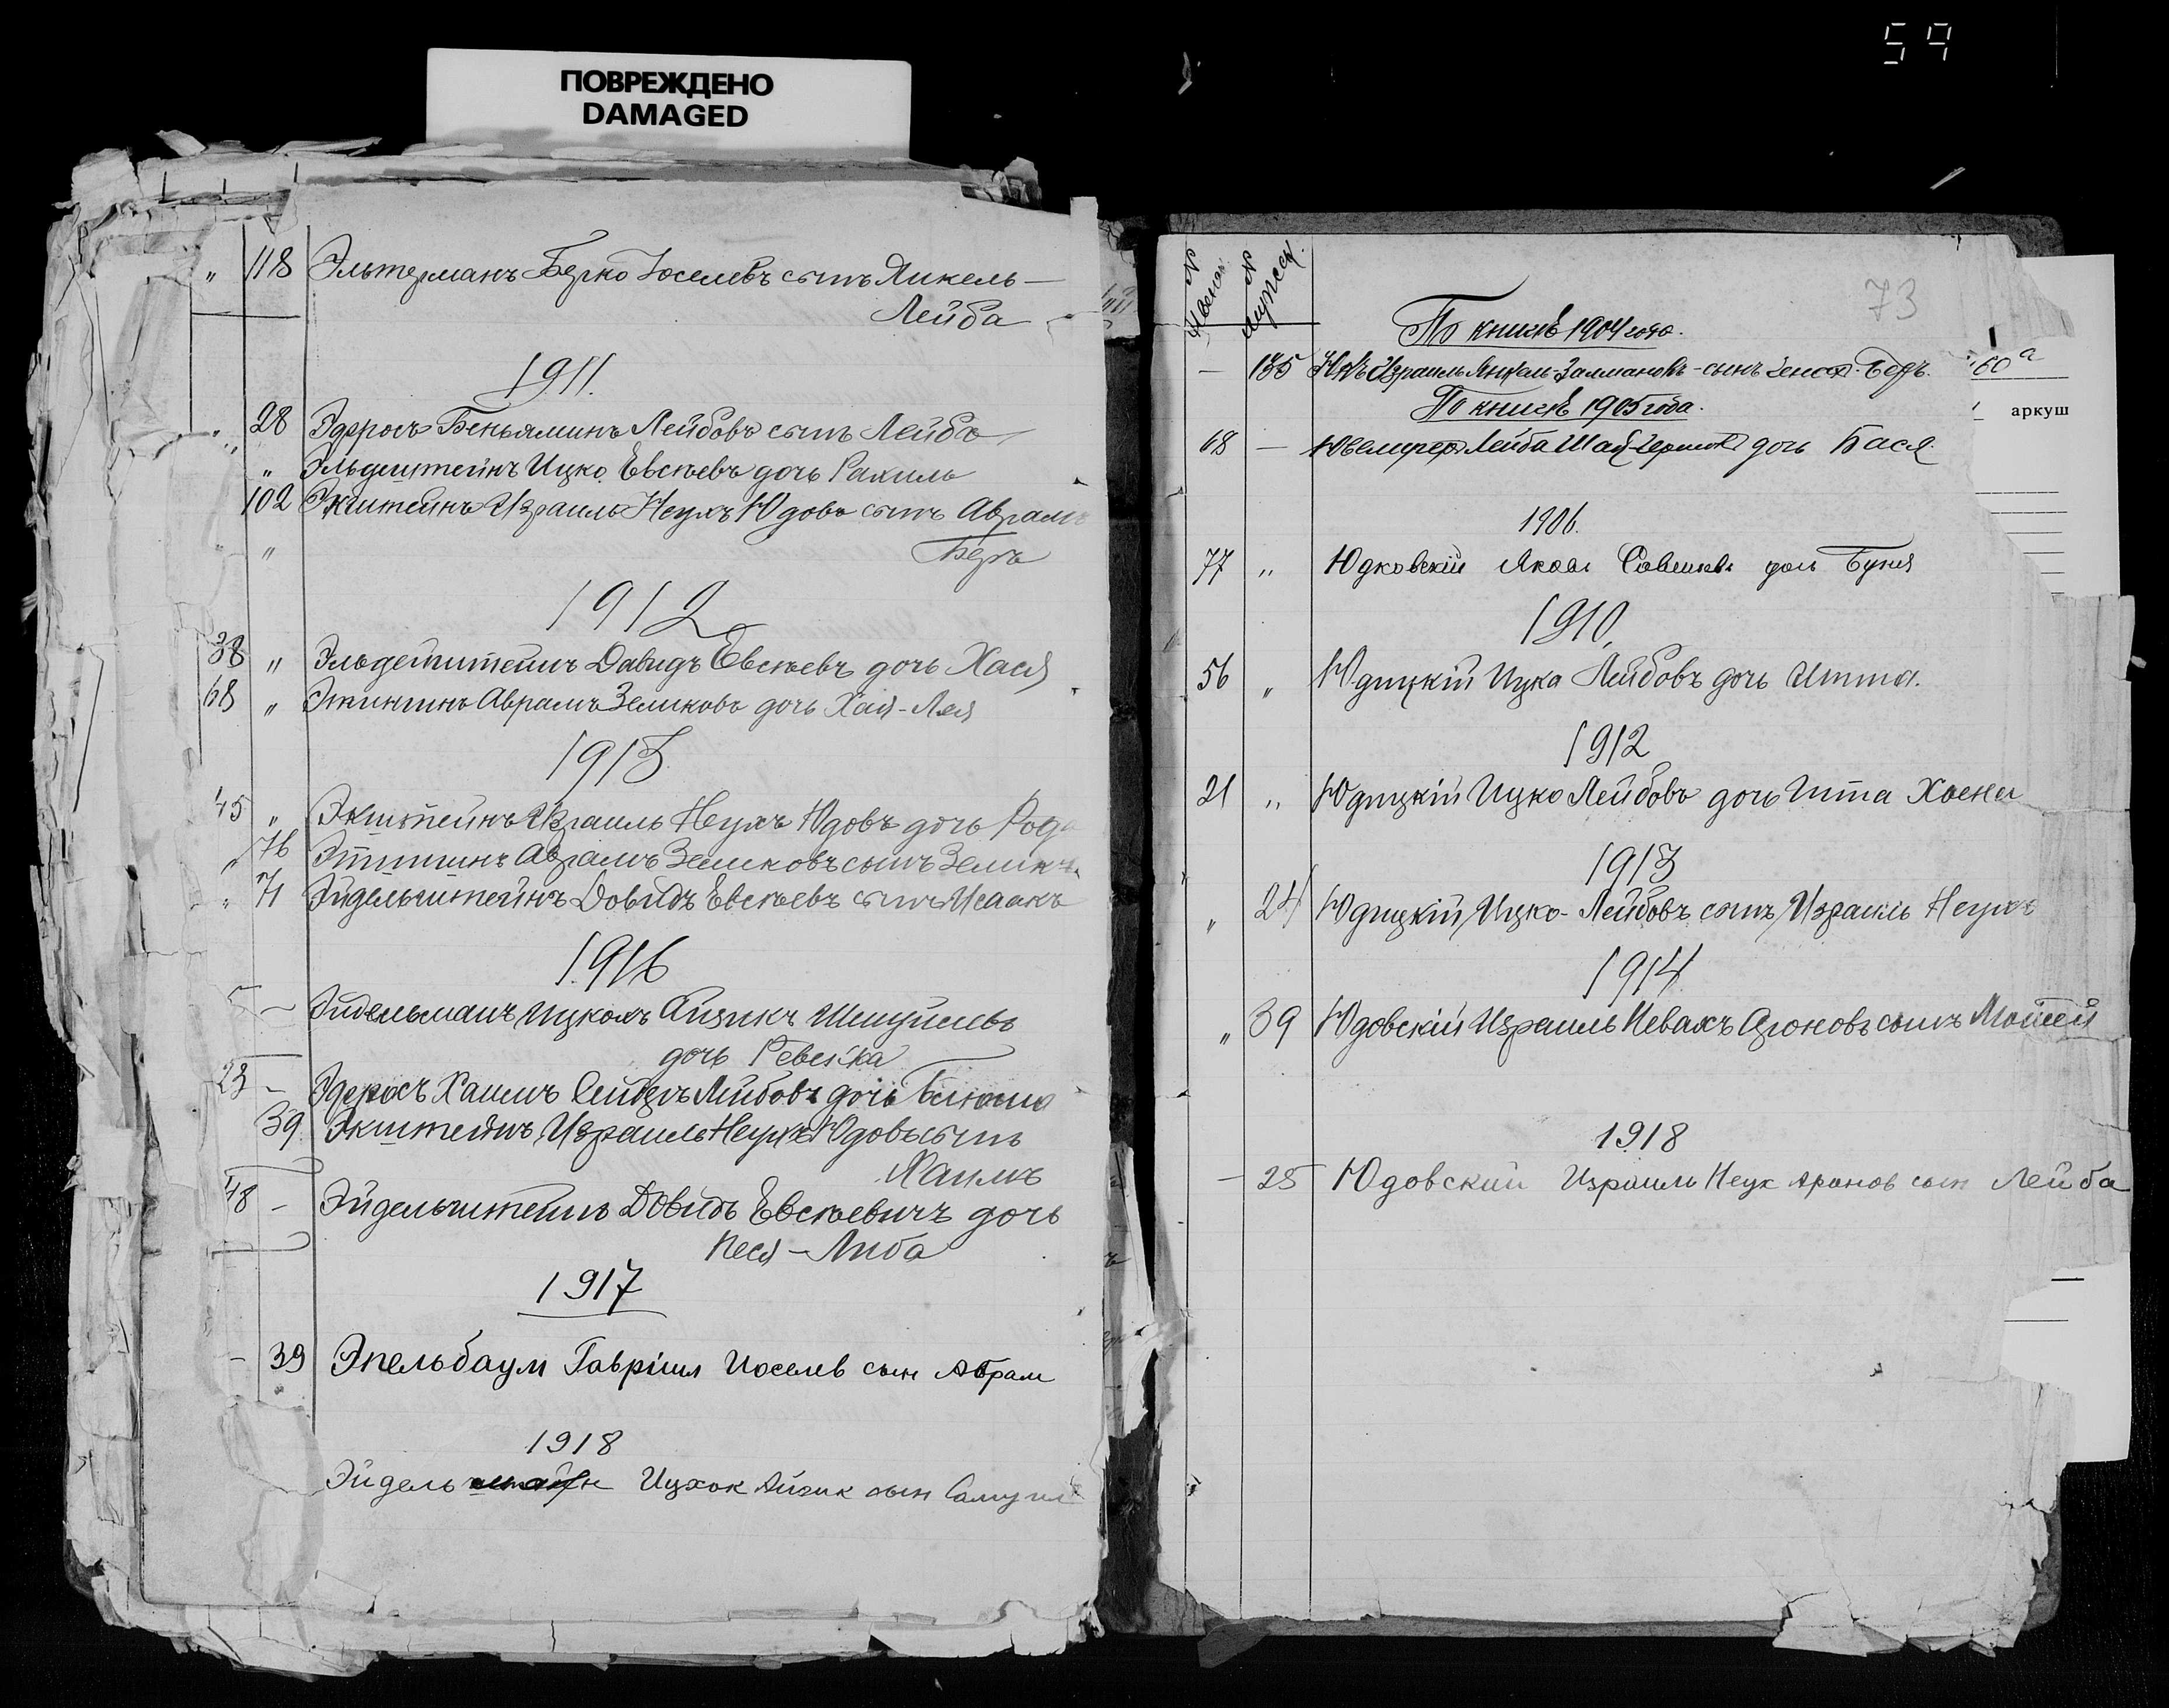 59
ПОВРЕЖДЕНО
DAMAGED
„ 118 Эльтерманъ Берко Іоселевъ сынъ Янкель—
Лейба
1911.
„ 28 Эдросъ Беньяминъ Лейбовъ сынъ Лейбъ
„ Эльдештейнъ Ицко Евсѣевъ дочь Рахиль
102 Экштейнъ Израиль Неухъ Юдовъ сынъ Абрамъ
„ Беръ
1912
38 „ Эльдештейнъ Давидъ Евсѣевъ дочь Хася
68 „ Абрамъ Зеликовъ дочь Хая-Лея
1913
45 „ Экштейнъ Израиль Неухъ Юдовъ дочь
„ 76 Абрамъ Зеликовъ сынъ Зеликъ
„ 71 Эйдельштейнъ Довидъ Евсѣевъ сынъ Исаакъ
1916
— Эйдельманъ Ицхокъ Айзикъ Шмуйлевъ
дочь Ревейка
23 — Эдросъ Хаимъ Лейбовъ дочь
39 Экштейнъ Израиль Неухъ Юдовъ сынъ
Хаимъ
48 — Эйдельштейнъ Довидъ Евсѣевичъ дочь
Песя—Либа
1917
— 39 Эпельбаум Гавріил Иоселев сын Абрам
1918
Эйдель Ицхок Айзик сын Самуил
73
№ №
По книгѣ 1904 года.
— 135 Израиль Янкель Залмановъ-сынъ
60 а
По книгѣ 1905 года.
аркуш
68 — Лейба дочь Бася.
1906.
77 „ Юдковскій Яковъ дочь Буня
1910,
56 „ Юдицкій Ицка Лейбовъ дочь Итта.
1912
21 „ Юдицкій Ицко Лейбовъ дочь Гитта
1913
„ 24 Юдицкій Ицко-Лейбовъ сынъ Израиль Неухъ
1914
„ 39 Юдовскій Израиль Невахъ Ароновъ сынъ Мойсей
1918
— 25 Юдовский Израиль Неух Аронов сын Лейба